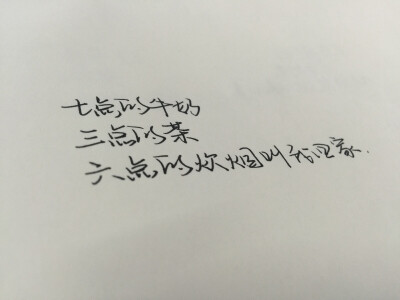 七点的牛奶
三点的茶
六点的炊烟叫我回家.